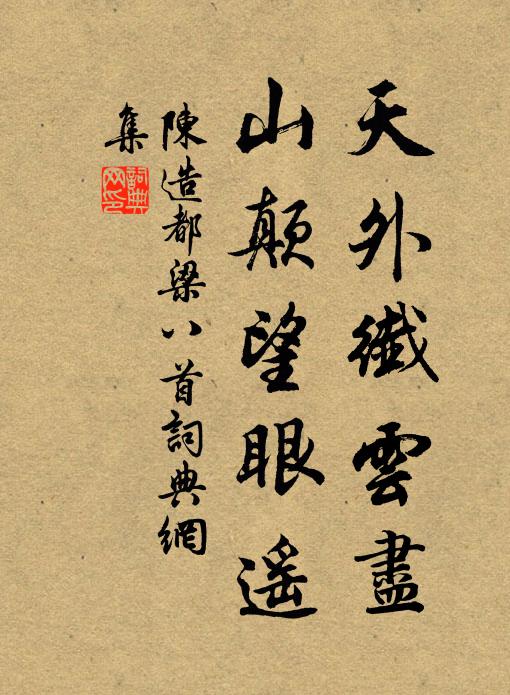 天外纖雲盡
山顛望眼遥
陳造都梁八首詞典網
集
詞典網印